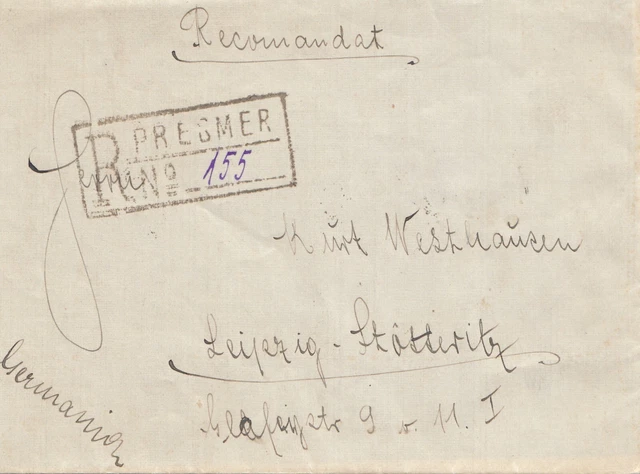 Recomandat
R PRESMER
No 155
Kurt Westhausen
Leipzig-Stötteritz
9 v. 11. I
Germania